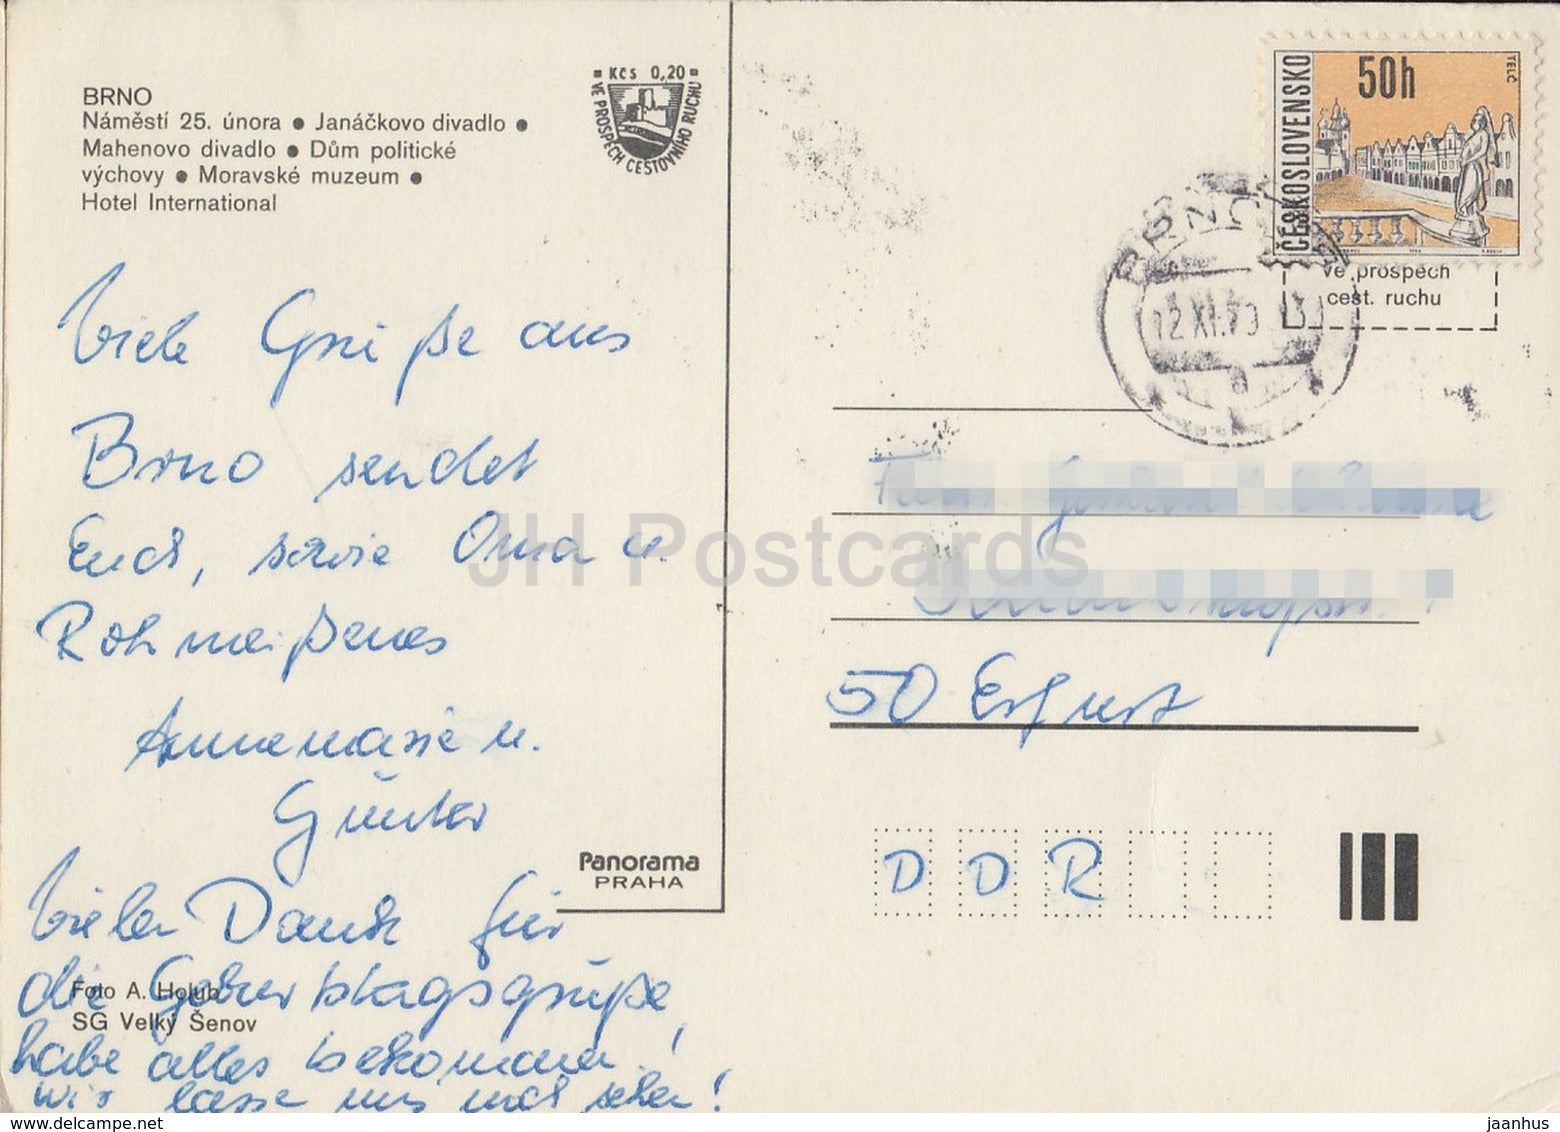 BRNO
Náměstí 25. února ● Janáčkovo divadlo ●
Mahenovo divadlo ● Dům politické
výchovy ● Moravské muzeum ●
Hotel International
Kčs 0,20
VE PROSPĚCH CESTOVNÍHO RUCHU
Viele Grüße aus
Brno sendet
Euch, sowie Oma u.
Rohmeißenes
Annemarie u.
Günter
Vielen Dank für
die Geburtstagsgrüße,
habe alles bekommen.
Wir lasse uns mal sehen!
Foto A. Holub
SG Velký Šenov
Panorama
PRAHA
ČESKOSLOVENSKO
50h
TELČ
BRNO
12.XI.79
ve prospěch
cest. ruchu
50 Erfurt
D D R
JH Postcards
www.delcampe.net
jaanhus